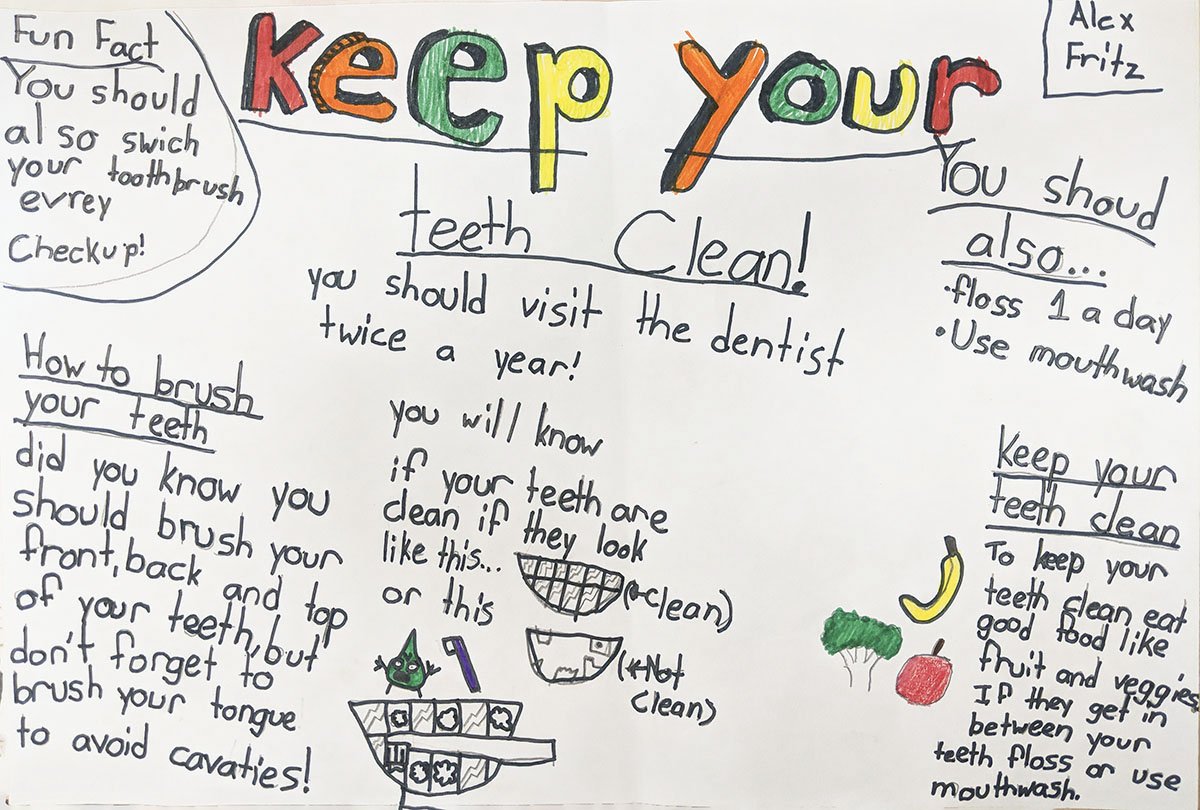 Fun Fact
You should
also swich
your toothbrush
evrey
Checkup!
Keep your
teeth Clean!
you should visit the dentist
twice a year!
Alex
Fritz
You shoud
also...
•floss 1 a day
•Use mouthwash
How to brush
your teeth
did you know you
should brush your
front, back and top
of your teeth, but
don't forget to
brush your tongue
to avoid cavaties!
you will know
if your teeth are
clean if they look
like this...
or this
(←clean)
(←Not
clean)
Keep your
teeth clean
To keep your
teeth clean eat
good food like
fruit and veggies,
If they get in
between your
teeth floss or use
mouthwash.